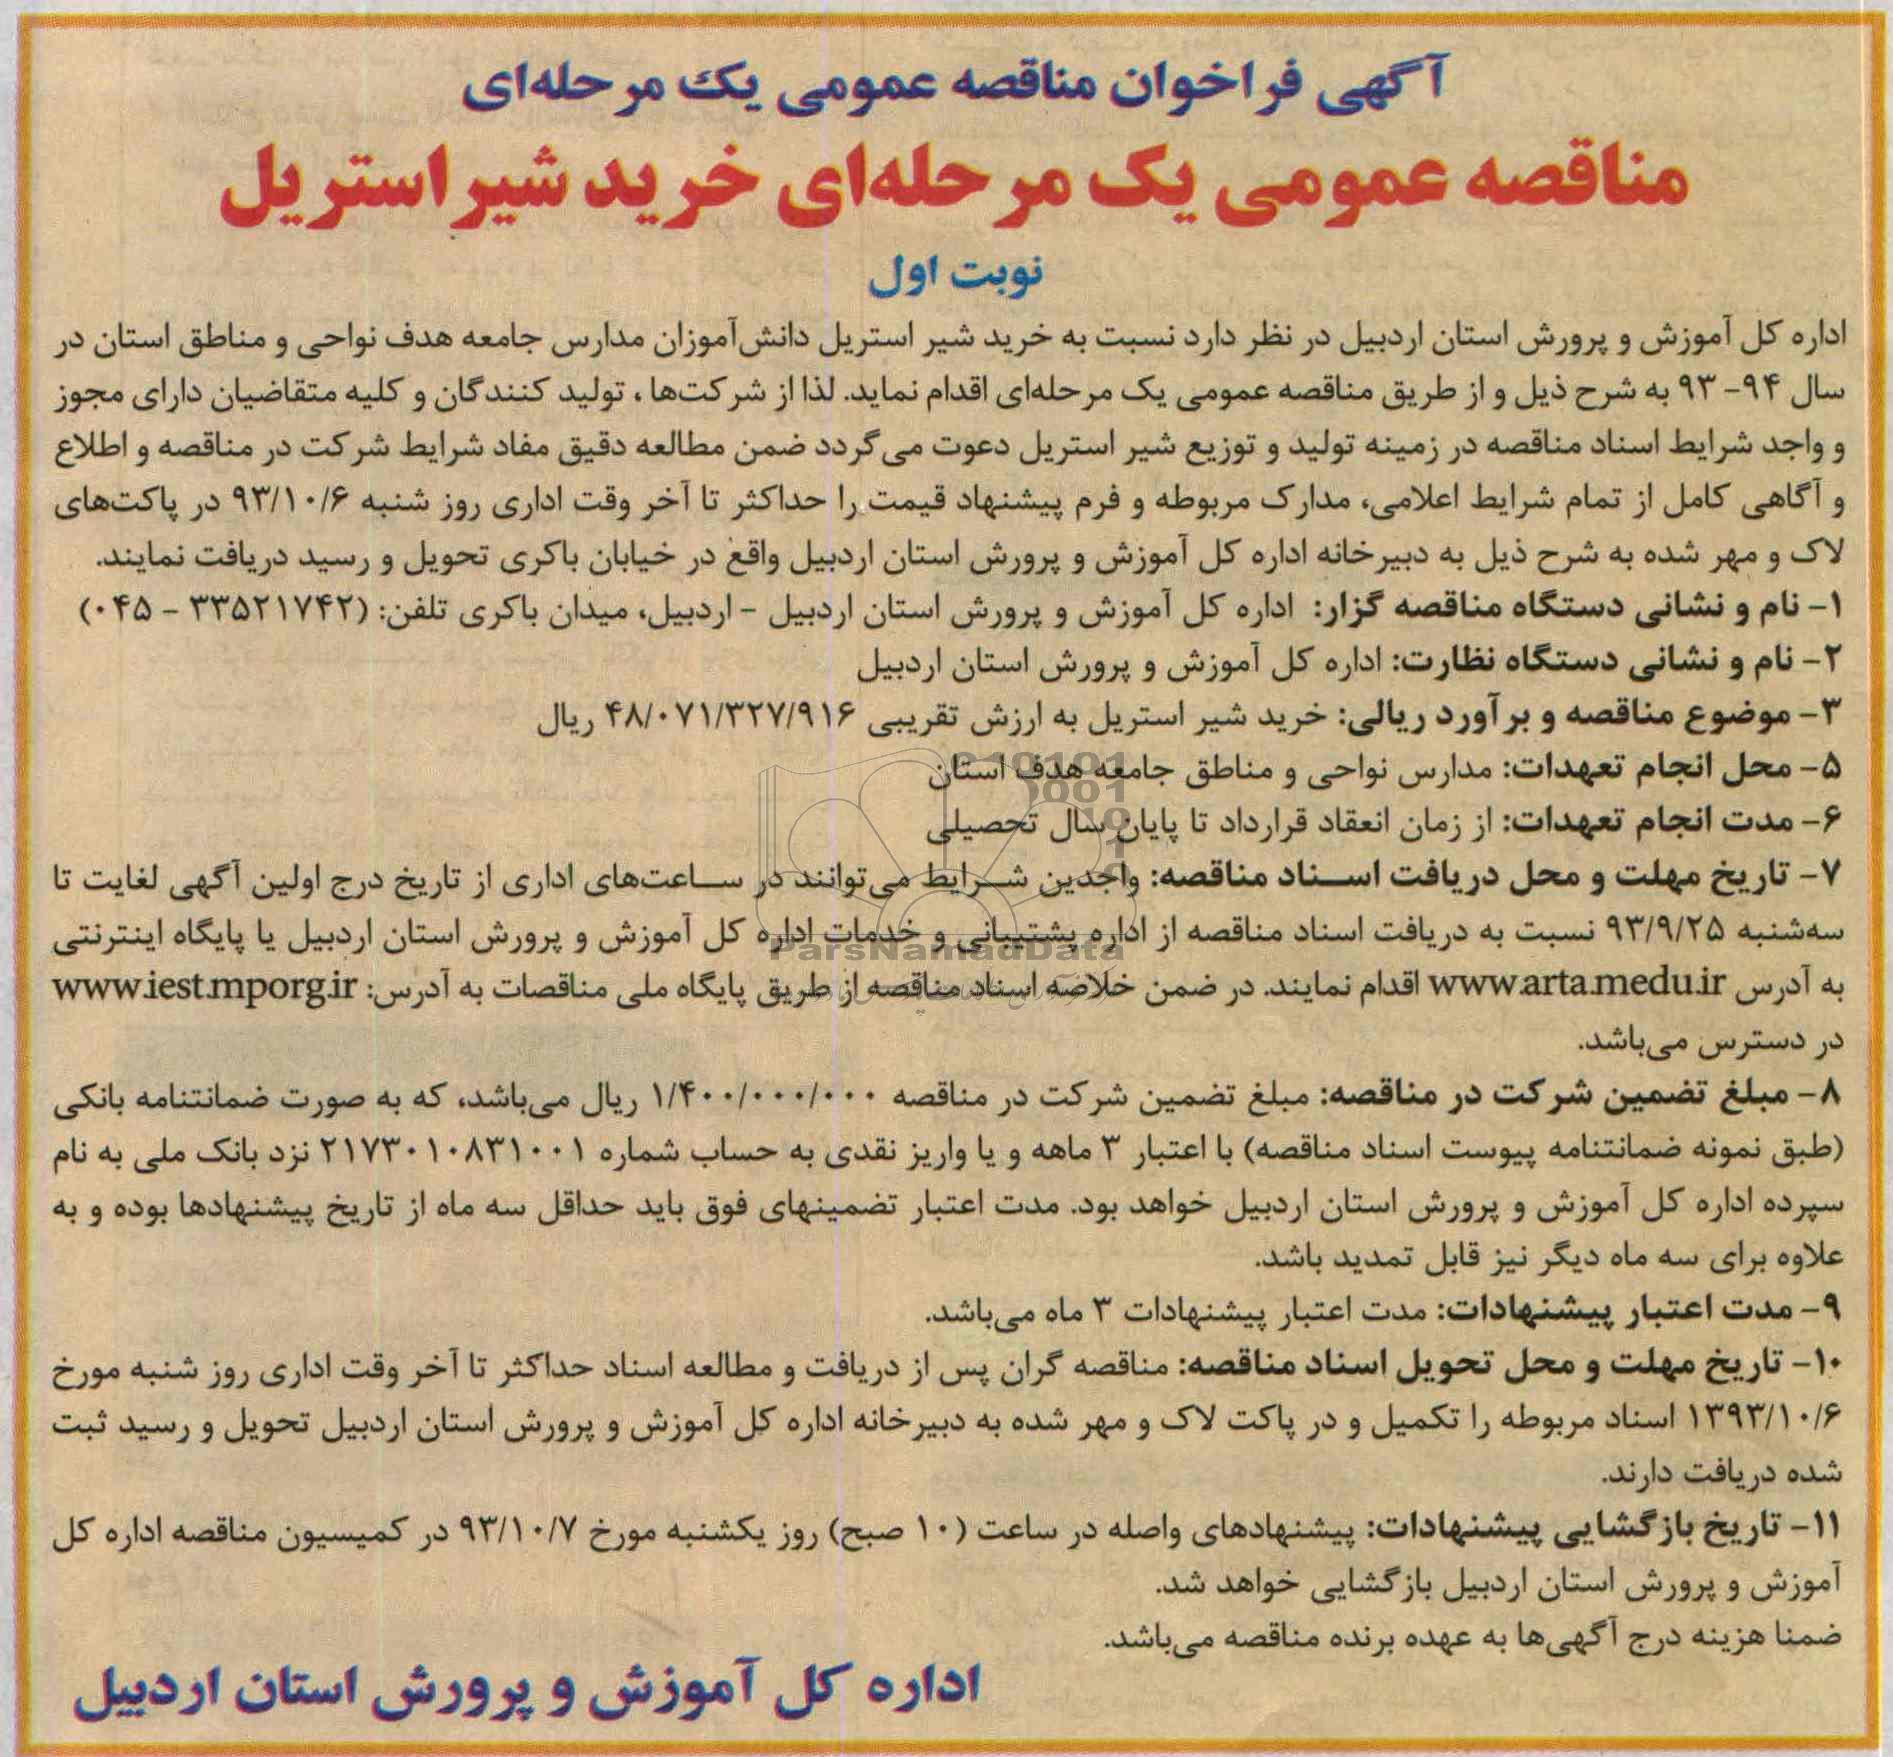 آگهی فراخوان مناقصه عمومی یک مرحله‌ای
مناقصه عمومی یک مرحله‌ای خرید شیر استریل
نوبت اول
اداره کل آموزش و پرورش استان اردبیل در نظر دارد نسبت به خرید شیر استریل دانش‌آموزان مدارس جامعه هدف نواحی و مناطق استان در
سال ۹۴- ۹۳ به شرح ذیل و از طریق مناقصه عمومی یک مرحله‌ای اقدام نماید. لذا از شرکت‌ها ، تولید کنندگان و کلیه متقاضیان دارای مجوز
و واجد شرایط اسناد مناقصه در زمینه تولید و توزیع شیر استریل دعوت می‌گردد ضمن مطالعه دقیق مفاد شرایط شرکت در مناقصه و اطلاع
و آگاهی کامل از تمام شرایط اعلامی، مدارک مربوطه و فرم پیشنهاد قیمت را حداکثر تا آخر وقت اداری روز شنبه ۹۳/۱۰/۶ در پاکت‌های
لاک و مهر شده به شرح ذیل به دبیرخانه اداره کل آموزش و پرورش استان اردبیل واقع در خیابان باکری تحویل و رسید دریافت نمایند.
۱- نام و نشانی دستگاه مناقصه گزار: اداره کل آموزش و پرورش استان اردبیل - اردبیل، میدان باکری تلفن: (۳۳۵۲۱۷۴۲ - ۰۴۵)
۲- نام و نشانی دستگاه نظارت: اداره کل آموزش و پرورش استان اردبیل
۳- موضوع مناقصه و برآورد ریالی: خرید شیر استریل به ارزش تقریبی ۴۸/۰۷۱/۳۲۷/۹۱۶ ریال
۵- محل انجام تعهدات: مدارس نواحی و مناطق جامعه هدف استان
۶- مدت انجام تعهدات: از زمان انعقاد قرارداد تا پایان سال تحصیلی
۷- تاریخ مهلت و محل دریافت اسناد مناقصه: واجدین شرایط می‌توانند در ساعت‌های اداری از تاریخ درج اولین آگهی لغایت تا
سه‌شنبه ۹۳/۹/۲۵ نسبت به دریافت اسناد مناقصه از اداره پشتیبانی و خدمات اداره کل آموزش و پرورش استان اردبیل یا پایگاه اینترنتی
به آدرس www.arta.medu.ir اقدام نمایند. در ضمن خلاصه اسناد مناقصه از طریق پایگاه ملی مناقصات به آدرس: www.iest.mporg.ir
در دسترس می‌باشد.
۸- مبلغ تضمین شرکت در مناقصه: مبلغ تضمین شرکت در مناقصه ۱/۴۰۰/۰۰۰/۰۰۰ ریال می‌باشد، که به صورت ضمانتنامه بانکی
(طبق نمونه ضمانتنامه پیوست اسناد مناقصه) با اعتبار ۳ ماهه و یا واریز نقدی به حساب شماره ۲۱۷۳۰۱۰۸۳۱۰۰۱ نزد بانک ملی به نام
سپرده اداره کل آموزش و پرورش استان اردبیل خواهد بود. مدت اعتبار تضمینهای فوق باید حداقل سه ماه از تاریخ پیشنهادها بوده و به
علاوه برای سه ماه دیگر نیز قابل تمدید باشد.
۹- مدت اعتبار پیشنهادات: مدت اعتبار پیشنهادات ۳ ماه می‌باشد.
۱۰- تاریخ مهلت و محل تحویل اسناد مناقصه: مناقصه گران پس از دریافت و مطالعه اسناد حداکثر تا آخر وقت اداری روز شنبه مورخ
۱۳۹۳/۱۰/۶ اسناد مربوطه را تکمیل و در پاکت لاک و مهر شده به دبیرخانه اداره کل آموزش و پرورش استان اردبیل تحویل و رسید ثبت
شده دریافت دارند.
۱۱- تاریخ بازگشایی پیشنهادات: پیشنهادهای واصله در ساعت (۱۰ صبح) روز یکشنبه مورخ ۹۳/۱۰/۷ در کمیسیون مناقصه اداره کل
آموزش و پرورش استان اردبیل بازگشایی خواهد شد.
ضمنا هزینه درج آگهی‌ها به عهده برنده مناقصه می‌باشد.
اداره کل آموزش و پرورش استان اردبیل
ParsNamadData